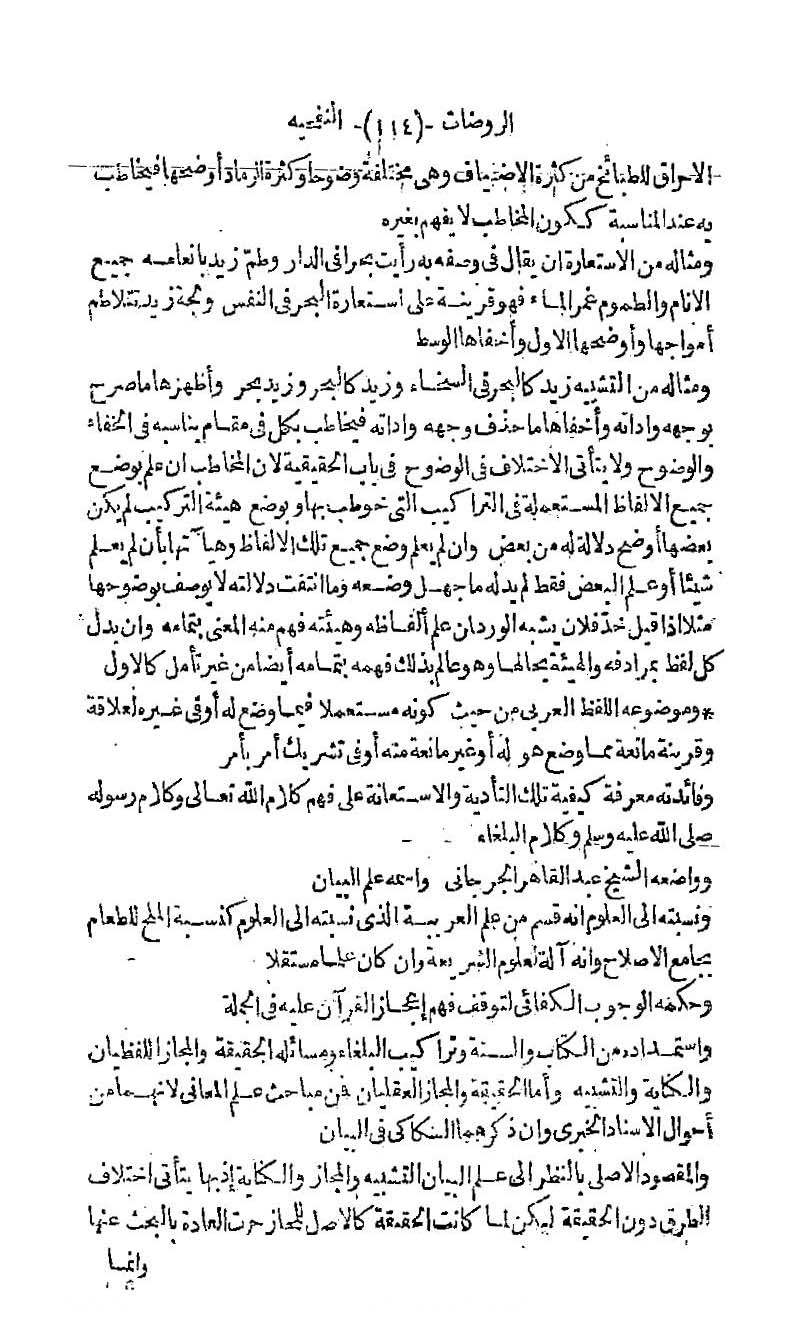 الروضات -(١١٤)- النفحيه
الاحراق للطبائخ من كثرة الاضياف وهى مختلفة وضوحا وكثرة الرماد أوضحها فيخاطب
به عند المناسبة ككون المخاطب لا يفهم بغيره
ومثاله من الاستعارة ان يقال فى وصفه به رأيت بحرا فى الدار وطمّ زيد بانعامه جميع
الانام والطموم غمر الماء فهو قرينة على استعارة البحر فى النفس ولجة زيد تتلاطم
أمواجها وأوضحها الاول وأخفاها الوسط
ومثاله من التشبيه زيد كالبحر فى السخاء وزيد كالبحر وزيد بحر وأظهرها ما صرح
بوجهه واداته وأخفاها ما حذف وجهه واداته فيخاطب بكل فى مقام يناسبه فى الخفاء
والوضوح ولا يتأتى الاختلاف فى الوضوح فى باب الحقيقية لان المخاطب ان علم بوضع
جميع الالفاظ المستعملة فى التراكيب التى خوطب بها وبوضع هيئة التركيب لم يكن
بعضها أوضح دلالة له من بعض وان لم يعلم وضع جميع تلك الالفاظ وهيآتها بأن لم يعلم
شيئا أو علم البعض فقط لم يدله ما جهل وضعه وما انتفت دلالته لا يوصف بوضوحها
مثلا اذا قيل خد فلان يشبه الورد ان علم ألفاظه وهيئته فهم منه المعنى بتمامه وان بدل
كل لفظ بمرادفه والهيئة بحالها وهو عالم بذلك فهمه بتمامه أيضا من غير تأمل كالاول
*وموضوعه اللفظ العربى من حيث كونه مستعملا فيما وضع له أو فى غيره لعلاقة
وقرينة مانعة مما وضع هو له أو غير مانعة منه أو فى تشريك أمر بأمر
وفائدته معرفة كيفية تلك التأدية والاستعانة على فهم كلام الله تعالى وكلام رسوله
صلى الله عليه وسلم وكلام البلغاء
وواضعه الشيخ عبد القاهر الجرجانى واسمه علم البيان
ونسبته الى العلوم انه قسم من علم العربية الذى نسبته الى العلوم كنسبة الملح للطعام
بجامع الاصلاح وانه آلة لعلوم الشريعة وان كان علما مستقلا
وحكمه الوجوب الكفائى لتوقف فهم إعجاز القرآن عليه فى الجملة
واستمداده من الكتاب والسنة وتراكيب البلغاء ومسائله الحقيقة والمجاز اللفظيان
والكناية والتشبيه وأما الحقيقة والمجاز العقليان فمن مباحث علم المعانى لانهما من
أحوال الاسناد الخبرى وان ذكرهما السكاكى فى البيان
والمقصود الاصلى بالنظر الى علم البيان التشبيه والمجاز والكناية إذ بها يتأتى اختلاف
الطرق دون الحقيقة ليكن لما كانت الحقيقة كالاصل للمجاز جرت العادة بالبحث عنها
وانما